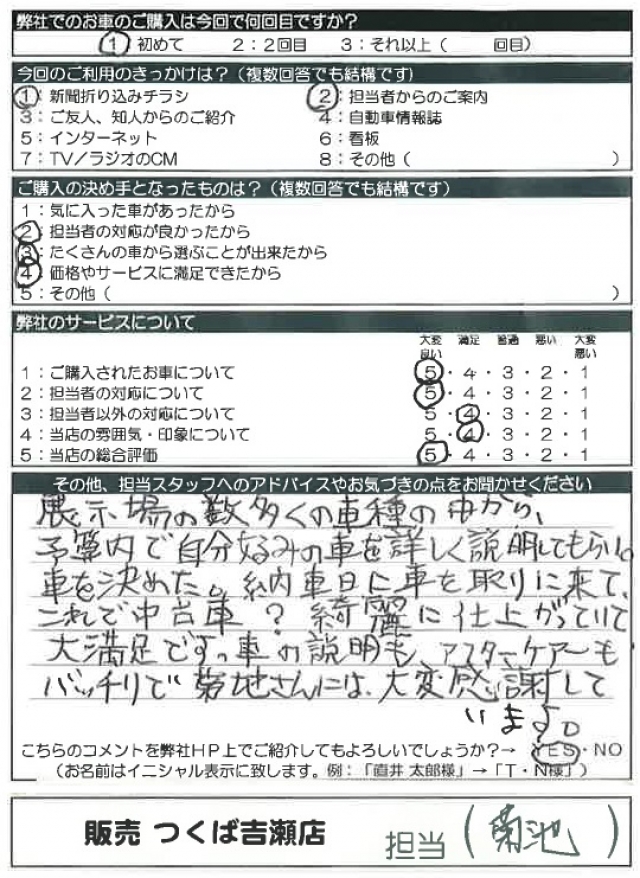 弊社でのお車のご購入は今回で何回目ですか?
1:初めて 2:2回目 3:それ以上( 回目)
今回のご利用のきっかけは?(複数回答でも結構です)
1:新聞折り込みチラシ 2:担当者からのご案内
3:ご友人、知人からのご紹介 4:自動車情報誌
5:インターネット 6:看板
7:TV/ラジオのCM 8:その他( )
ご購入の決め手となったものは?(複数回答でも結構です)
1:気に入った車があったから
2:担当者の対応が良かったから
3:たくさんの車から選ぶことが出来たから
4:価格やサービスに満足できたから
5:その他( )
弊社のサービスについて
大変良い 満足 普通 悪い 大変悪い
1:ご購入されたお車について 5・4・3・2・1
2:担当者の対応について 5・4・3・2・1
3:担当者以外の対応について 5・4・3・2・1
4:当店の雰囲気・印象について 5・4・3・2・1
5:当店の総合評価 5・4・3・2・1
その他、担当スタッフへのアドバイスやお気づきの点をお聞かせください
展示場の数多くの車種の中から、
予算内で自分好みの車を詳しく説明してもらい。
車を決めた。納車日に車を取りに来て、
これで中古車?綺麗に仕上がっていて
大満足ですっ車の説明も、アスターケアーも
バッチリで菊地さんには、大変感謝して
います。
こちらのコメントを弊社HP上でご紹介してもよろしいでしょうか?→ YES・NO
(お名前はイニシャル表示に致します。例:「直井 太郎様」→「T・N様」)
販売 つくば吉瀬店 担当(菊池)